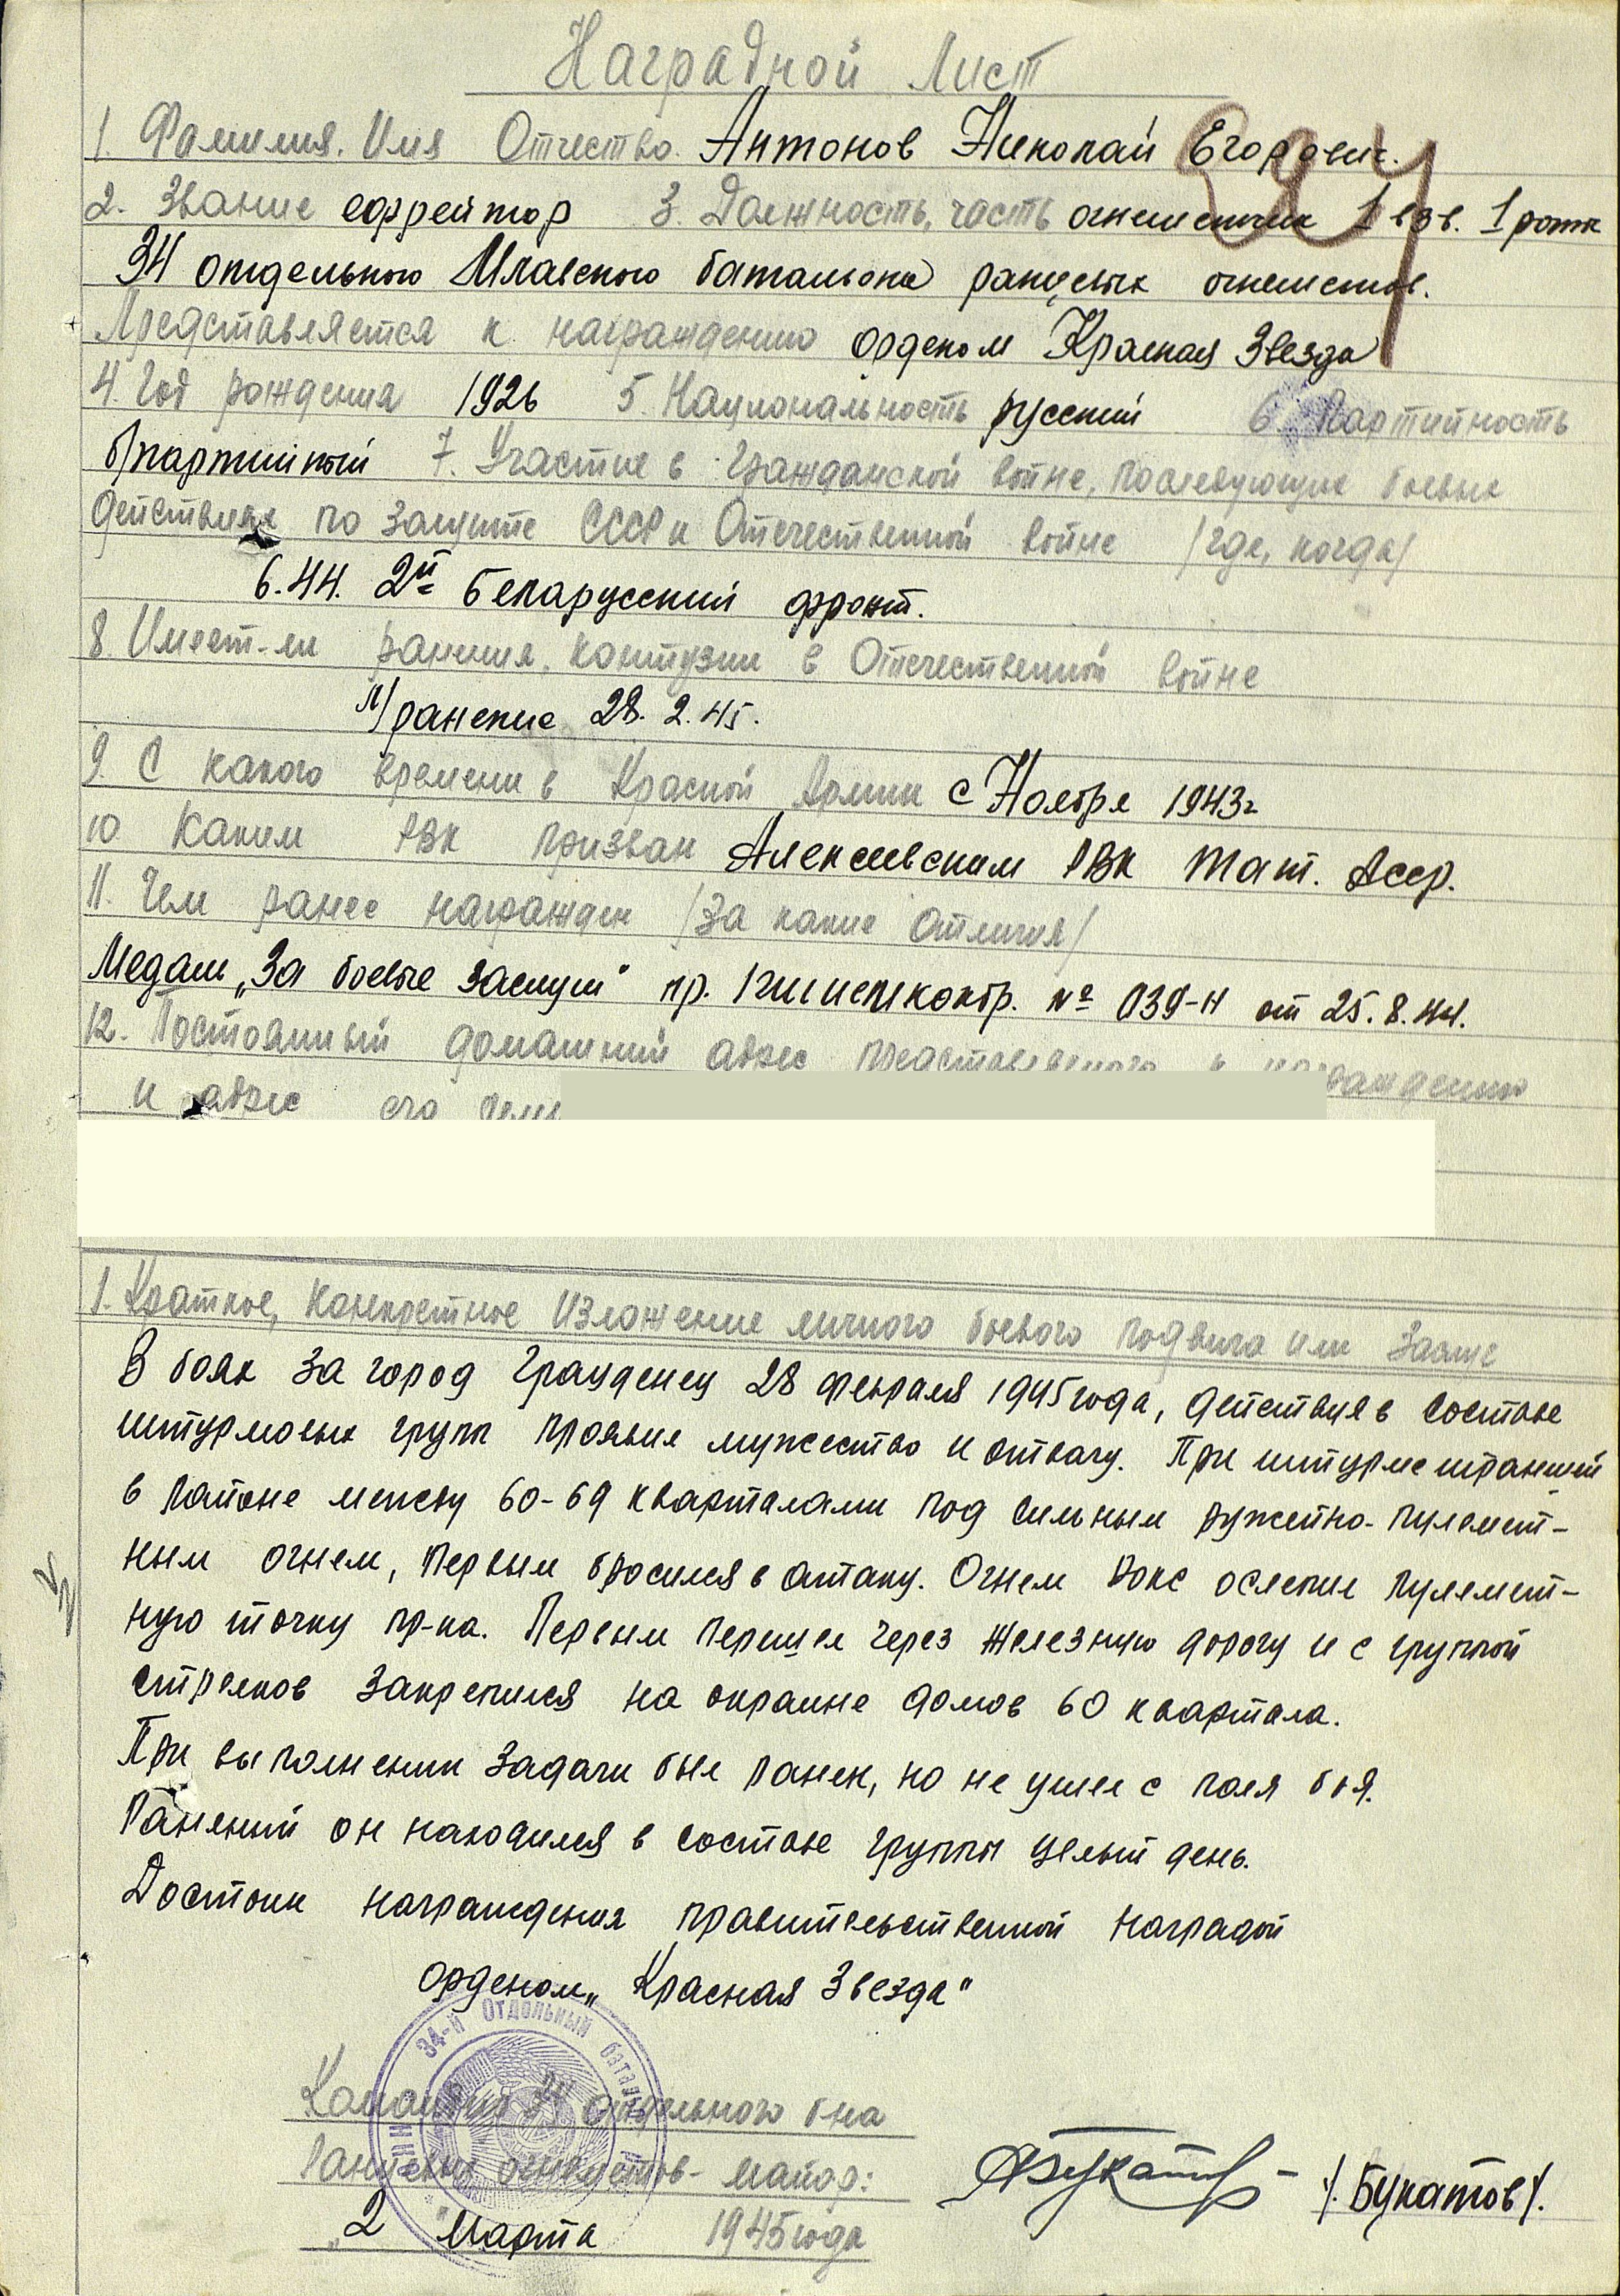 Наградной Лист
1. Фамилия. Имя Отчество. Антонов Николай Егорович.
2. Звание ефрейтор 3. Должность, часть огнеметчик 1 взв. 1 роты
34 отдельного Млавского батальона ранцевых огнеметов.
Представляется к награждению орденом Красная Звезда
4. Год рождения 1926 5. Национальность русский 6. Партийность
б/партийный 7. Участие в Гражданской войне, последующих боевых
действиях по защите СССР и Отечественной войне /где, когда/
6.44. 2й Беларусский фронт.
8. Имеет-ли ранения, контузии в Отечественной войне
Л/ранение 28. 2. 45.
9. С какого времени в Красной Армии с Ноября 1943г
10 Каким РВК призван Алексеевским РВК Тат. Асср.
11. Чем ранее награжден /За какие отличия/
Медаль „За боевые заслуги" пр. № 039-Н от 25. 8. 44.
12. Постоянный домашний адрес представляемого к награждению
и адрес его
1. Краткое, Конкретное Изложение личного боевого подвига или Заслуг
В боях за город Грауденец 28 февраля 1945 года, действуя в составе
штурмовых групп проявил мужество и отвагу. При штурме траншей
в районе между 60-69 кварталами под сильным ружейно-пулемет-
ным огнем, первым бросился в атаку. Огнем Рокс ослепил пулемет-
ную точку пр-ка. Первым перешел через железную дорогу и с группой
стрелков закрепился на окраине домов 60 квартала.
При выполнении задачи был ранен, но не ушел с поля боя.
Раненый он находился в составе группы целый день.
Достоин награждения правительственной наградой
орденом „Красная Звезда"
34-й Отдельный батальон
Командир 34 отдельного б-на
Ранцевых огнеметов - майор:
Букатов /Букатов/.
„2" Марта 1945 года